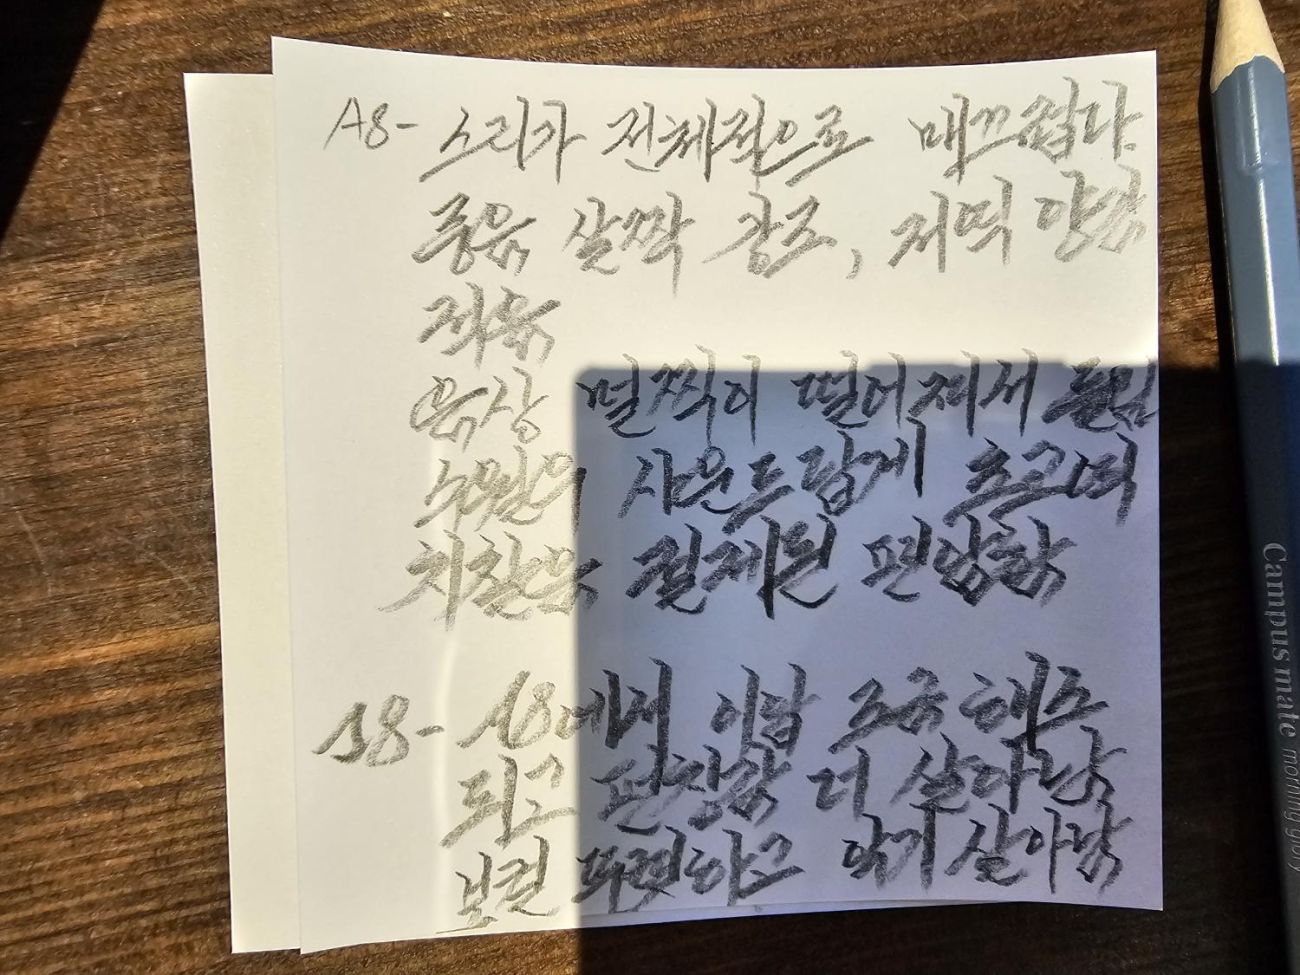 A8- 소리가 전체적으로 매끄럽다.
중음 살짝 강조, 저역 양감
적음
음상 멀찍이 떨어져서 들림
수월의 사운드답게 초고역
치찰음 절제된 편안함
S8- A8에서 이람 조금 해소
되고 펀칭감 더 살아남
보컬 뚜렷하고 악기 살아남
Campus mate morning glory